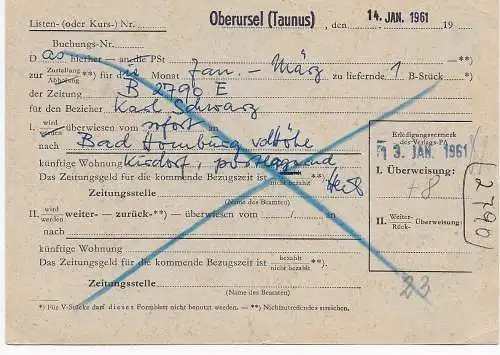 Listen- (oder Kurs-) Nr. Oberursel (Taunus), den 14. JAN. 1961 19
Buchungs-Nr.
Das hierher — an die PSt —**)
zur Zustellung Abholung **) für die Monat Jan. - März zu liefernde 1 B-Stück *)
der Zeitung B 2790 E
für den Bezieher Karl Schwarz
I. wird werden überwiesen vom sofort an
nach Bad Homburg vdHöhe
künftige Wohnung Kirdorf, postlagernd
Das Zeitungsgeld für die kommende Bezugszeit ist bezahlt nicht bezahlt **).
Zeitungsstelle
(Name des Beamten)
II. wird werden weiter- — zurück-**) — überwiesen vom / an
nach
künftige Wohnung
Das Zeitungsgeld für die kommende Bezugszeit ist bezahlt nicht bezahlt **).
Zeitungsstelle
(Name des Beamten)
*) Für V-Stücke darf dieses Formblatt nicht benutzt werden. — **) Nichtzutreffendes streichen.
Erledigungsvermerk
des Verlags-PA
3. JAN. 1961
I. Überweisung:
+8
II. Weiter- Rück- Überweisung:
2790
23